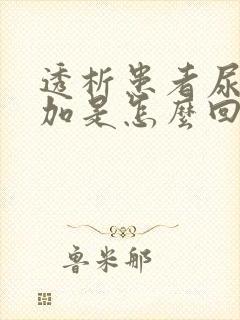 透析患者尿
加是怎麼回
魯米那